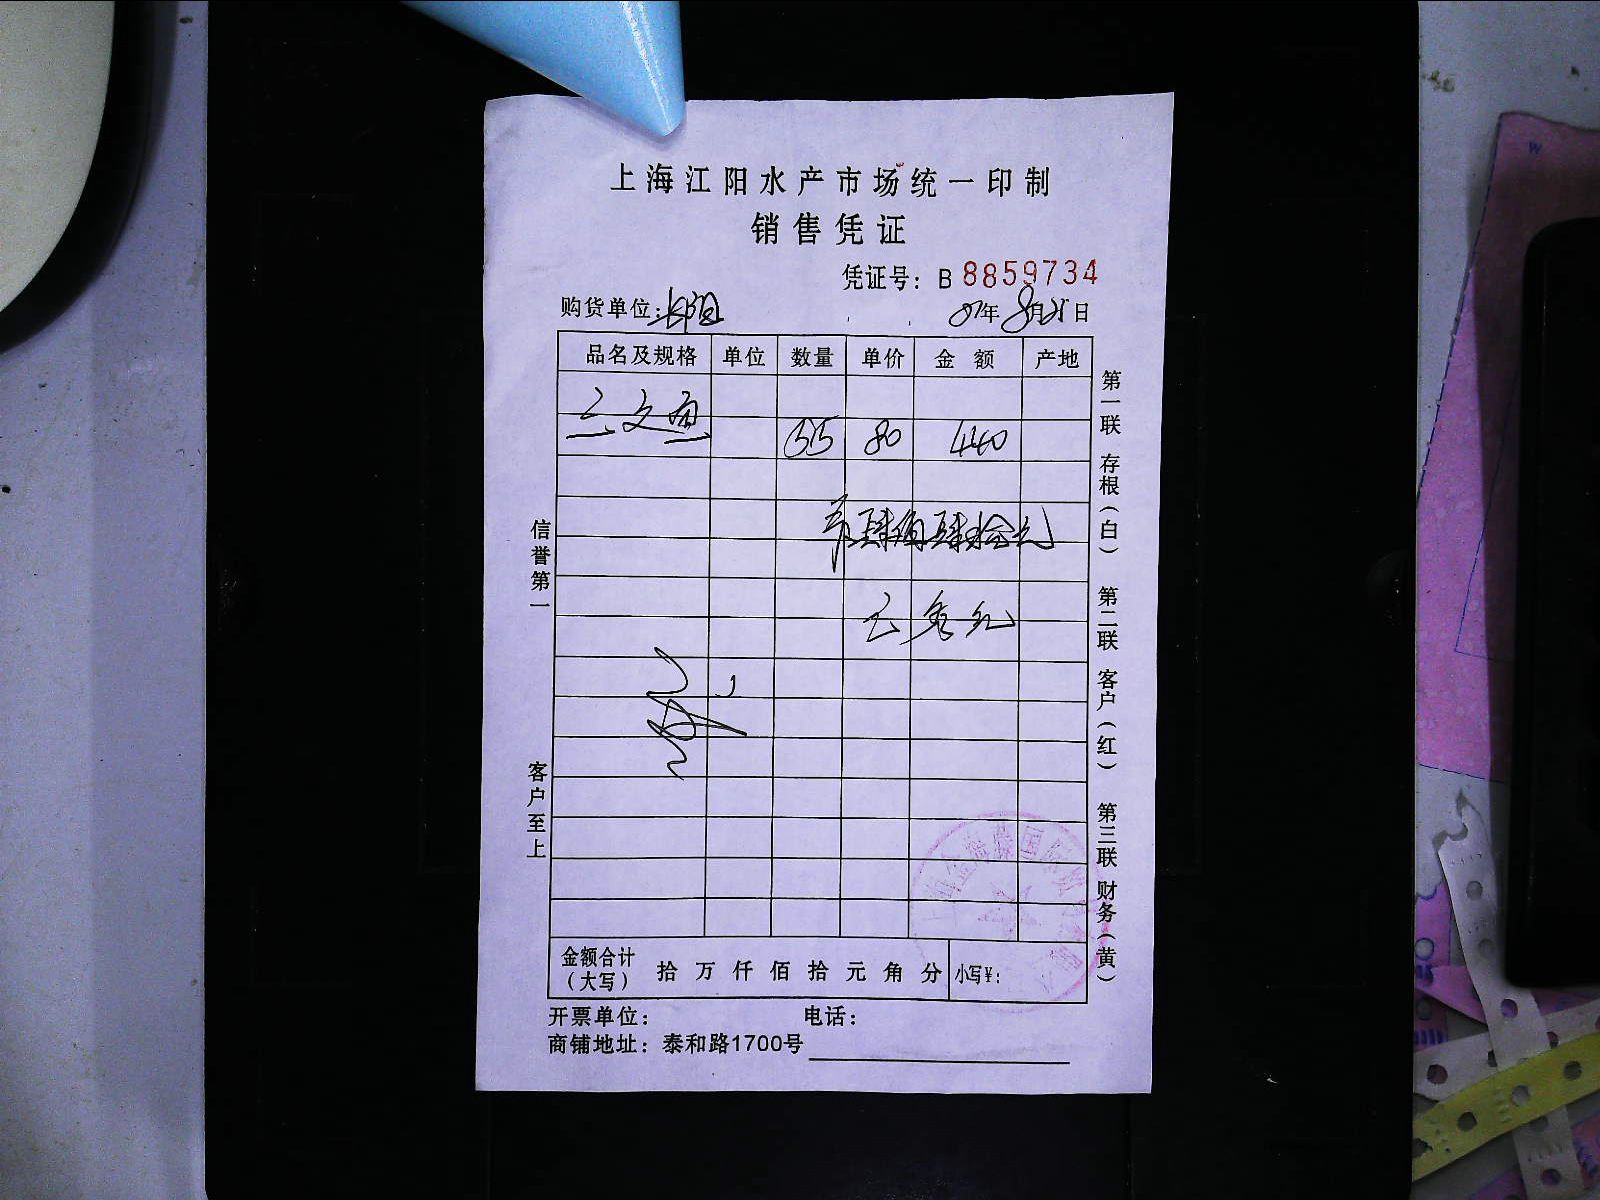 上海江阳水产市场统一印制
销售凭证
凭证号：B 8859734
购货单位：
年8月25日
品名及规格 单位 数量 单价 金额 产地
三文鱼 55 80 440
肆佰肆拾元
信誉第一
客户至上
第一联 存根（白） 第二联 客户（红） 第三联 财务（黄）
金额合计（大写） 拾 万 仟 佰 拾 元 角 分 小写¥：
开票单位： 电话：
商铺地址：泰和路1700号